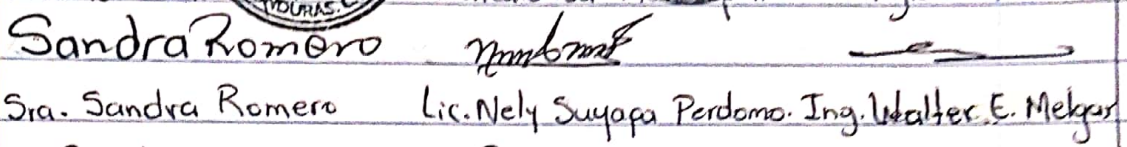 DURAS.
Sandra Romero
Sra. Sandra Romero Lic. Nely Suyapa Perdomo. Ing. Walter E. Melgar